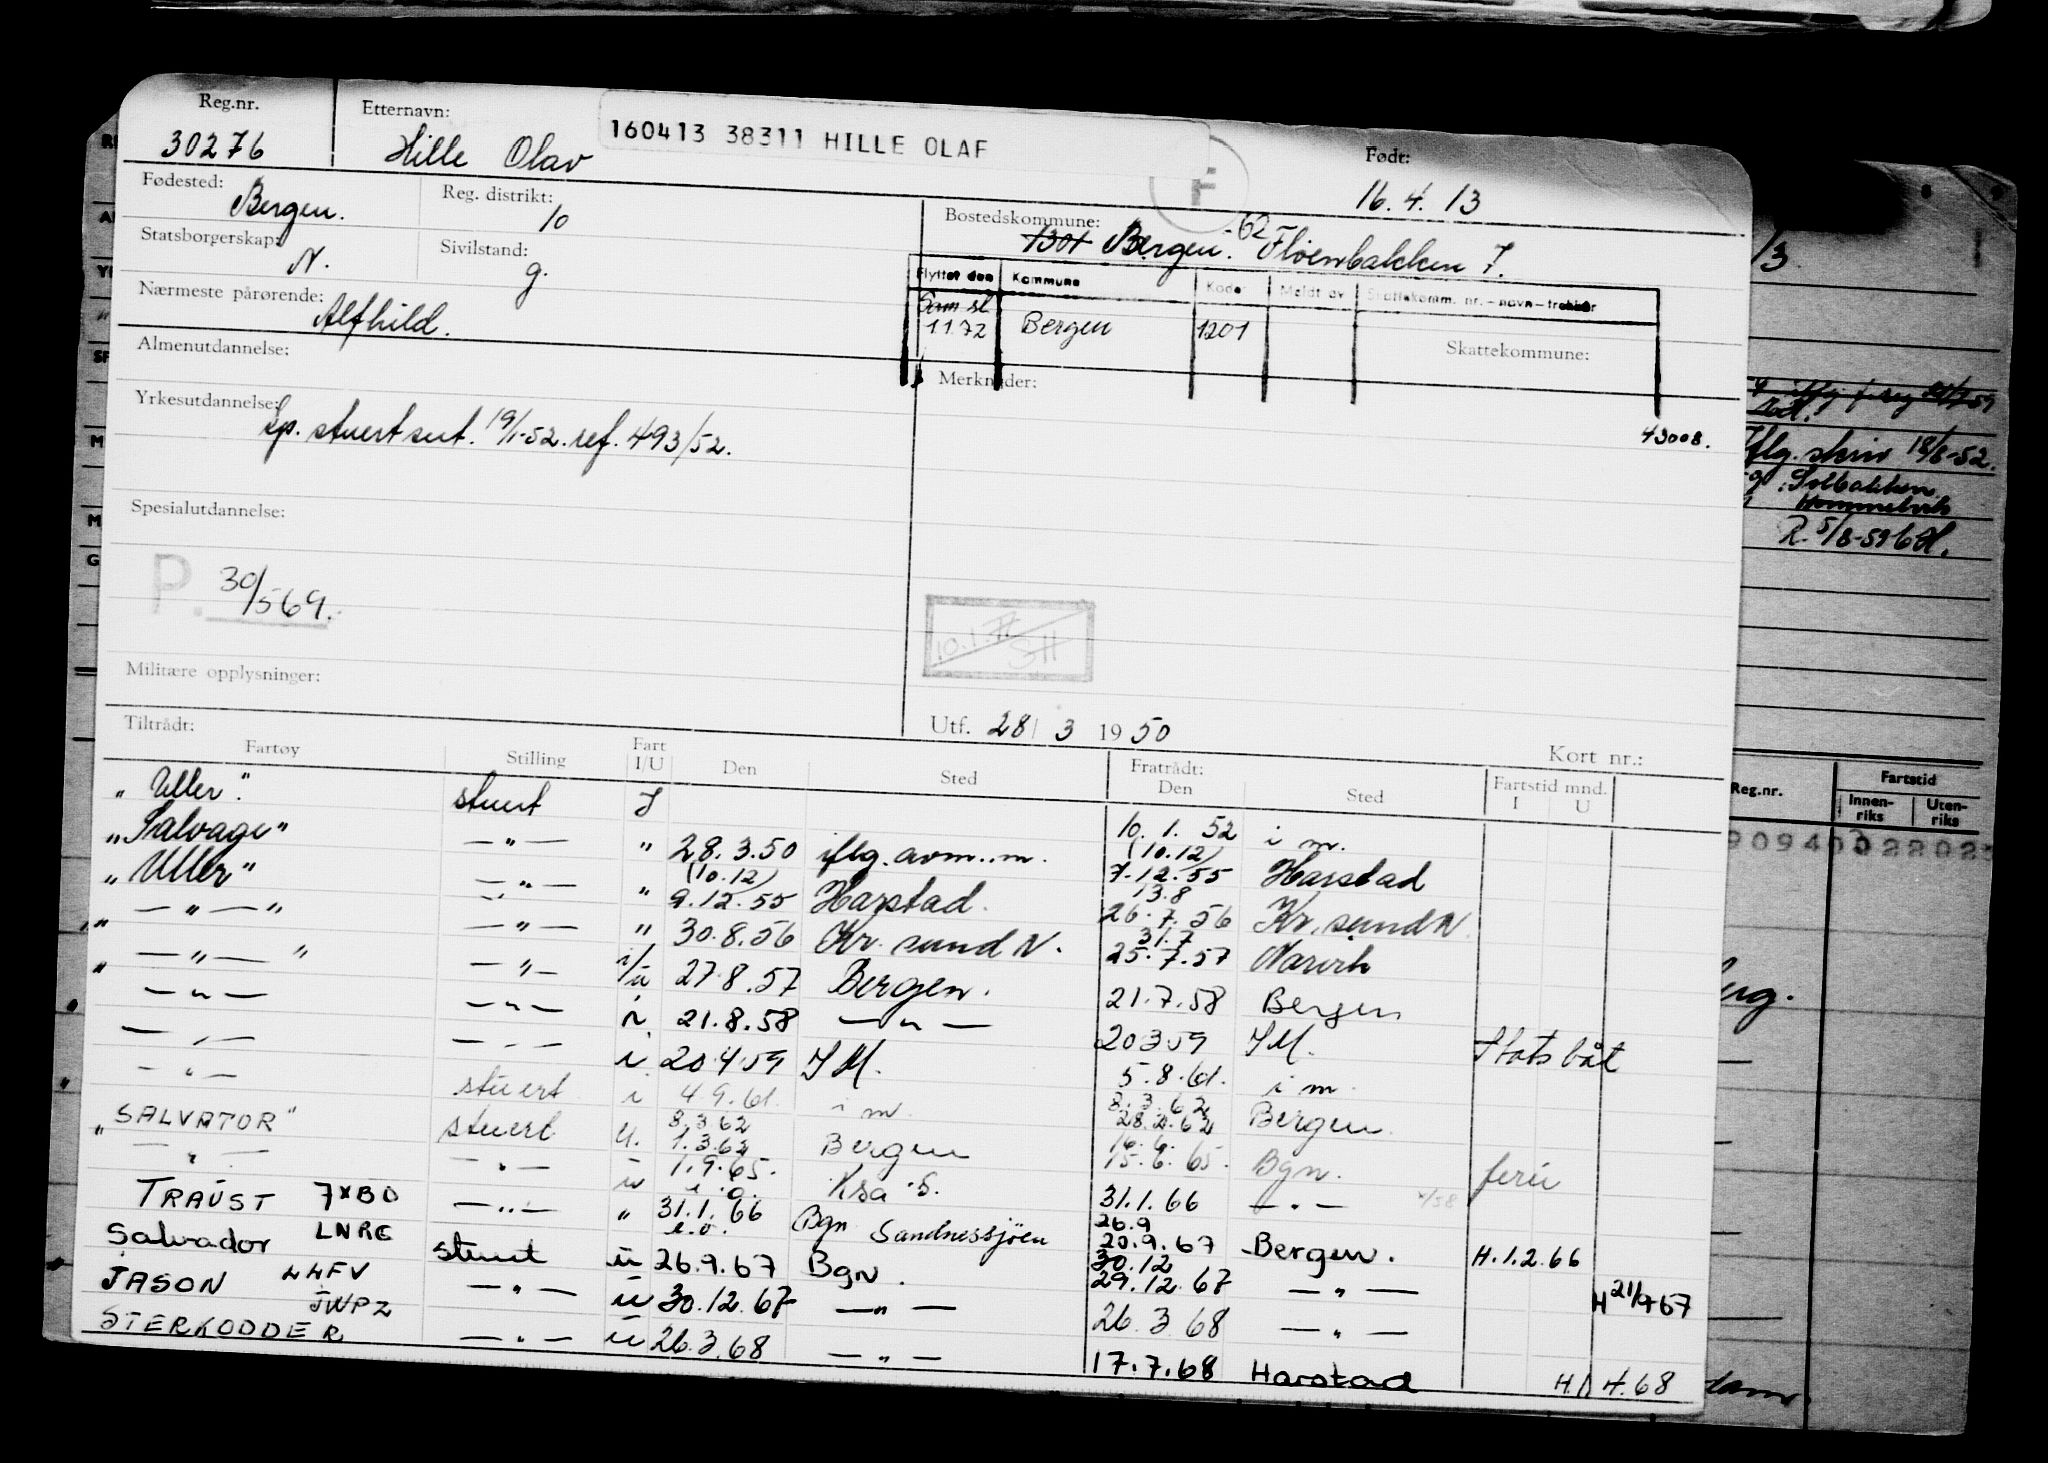 Reg.nr. Etternavn: 160413 38311 HILLE OLAF Født:
30276 Hille Olav F 16. 4. 13
Fødested: Bergen. Reg. distrikt: 10 Bostedskommune: 1301 Bergen. -62 Fløenbakken 7.
Statsborgerskap: N. Sivilstand: g.
Flyttet den Kommune Kode Meldt av Skattekomm. nr. - navn - trekkår
Nærmeste pårørende: Alfhild. Sam st 11.72 Bergen 1201
Almenutdannelse: Skattekommune:
Merknader:
Yrkesutdannelse: Sp. stuert sert. 19/1-52. ref. 493/52. 43008.
Spesialutdannelse:
P. 30/569.
10.1.77 SH
Militære opplysninger:
Utf. 28/ 3 1950
Tiltrådt: Kort nr.:
Fartøy Stilling Fart I/U Den Sted Fratrådt: Den Sted Fartstid mnd. I U
"Uller". stuert I 10. 1. 52 i m.
"Salvage" — " — " 28. 3.50 iflg. avm. m. (10.12) 7.12.55 Harstad
"Uller" — " — " (10.12) 9.12.55 Harstad. 13.8 26.7.56 Kr. sund N.
" — " — " — " — " 30.8.56 Kr. sund N. 31.7 25.7.57 Narvik
" — " — " — " — i/u 27.8.57 Bergen. 21.7.58 Bergen
— " — — " — i. 21.8.58 — " — 20359 I M. Statsbåt
— " — — " — i 20459 I M. 5.8.61. i m.
— " — stuert i 4.9.61. i m. 8.3.62 28.2.62 Bergen
"SALVATOR" stuert U. 8.3.62 1.3.62 Bergen 16.6. 15.6.65. Bgn. ferie
— " — — " — u 1.9.65. Ksa S. 31.1.66 — " —
TRAUST 7XBD — " — " 31.1.66 Bgn Sandnessjøen 26.9 20.9.67 Bergen. H.1.2.66
Salvador LNRG stuert u 26.9.67 Bgn. 30.12 29.12.67 — " — H 21/9 67
JASON LLFV — " — u 30.12.67 — " — 26.3 68 — " —
STERKODDER JWPZ — " — u 26.3.68 — " — 17.7.68 Harstad H 4.68
Iflg. skriv 18/8-52.
Solbakken
Hommelvik
R. 5/8-59
Reg.nr. Fartstid
Innen-riks Uten-riks